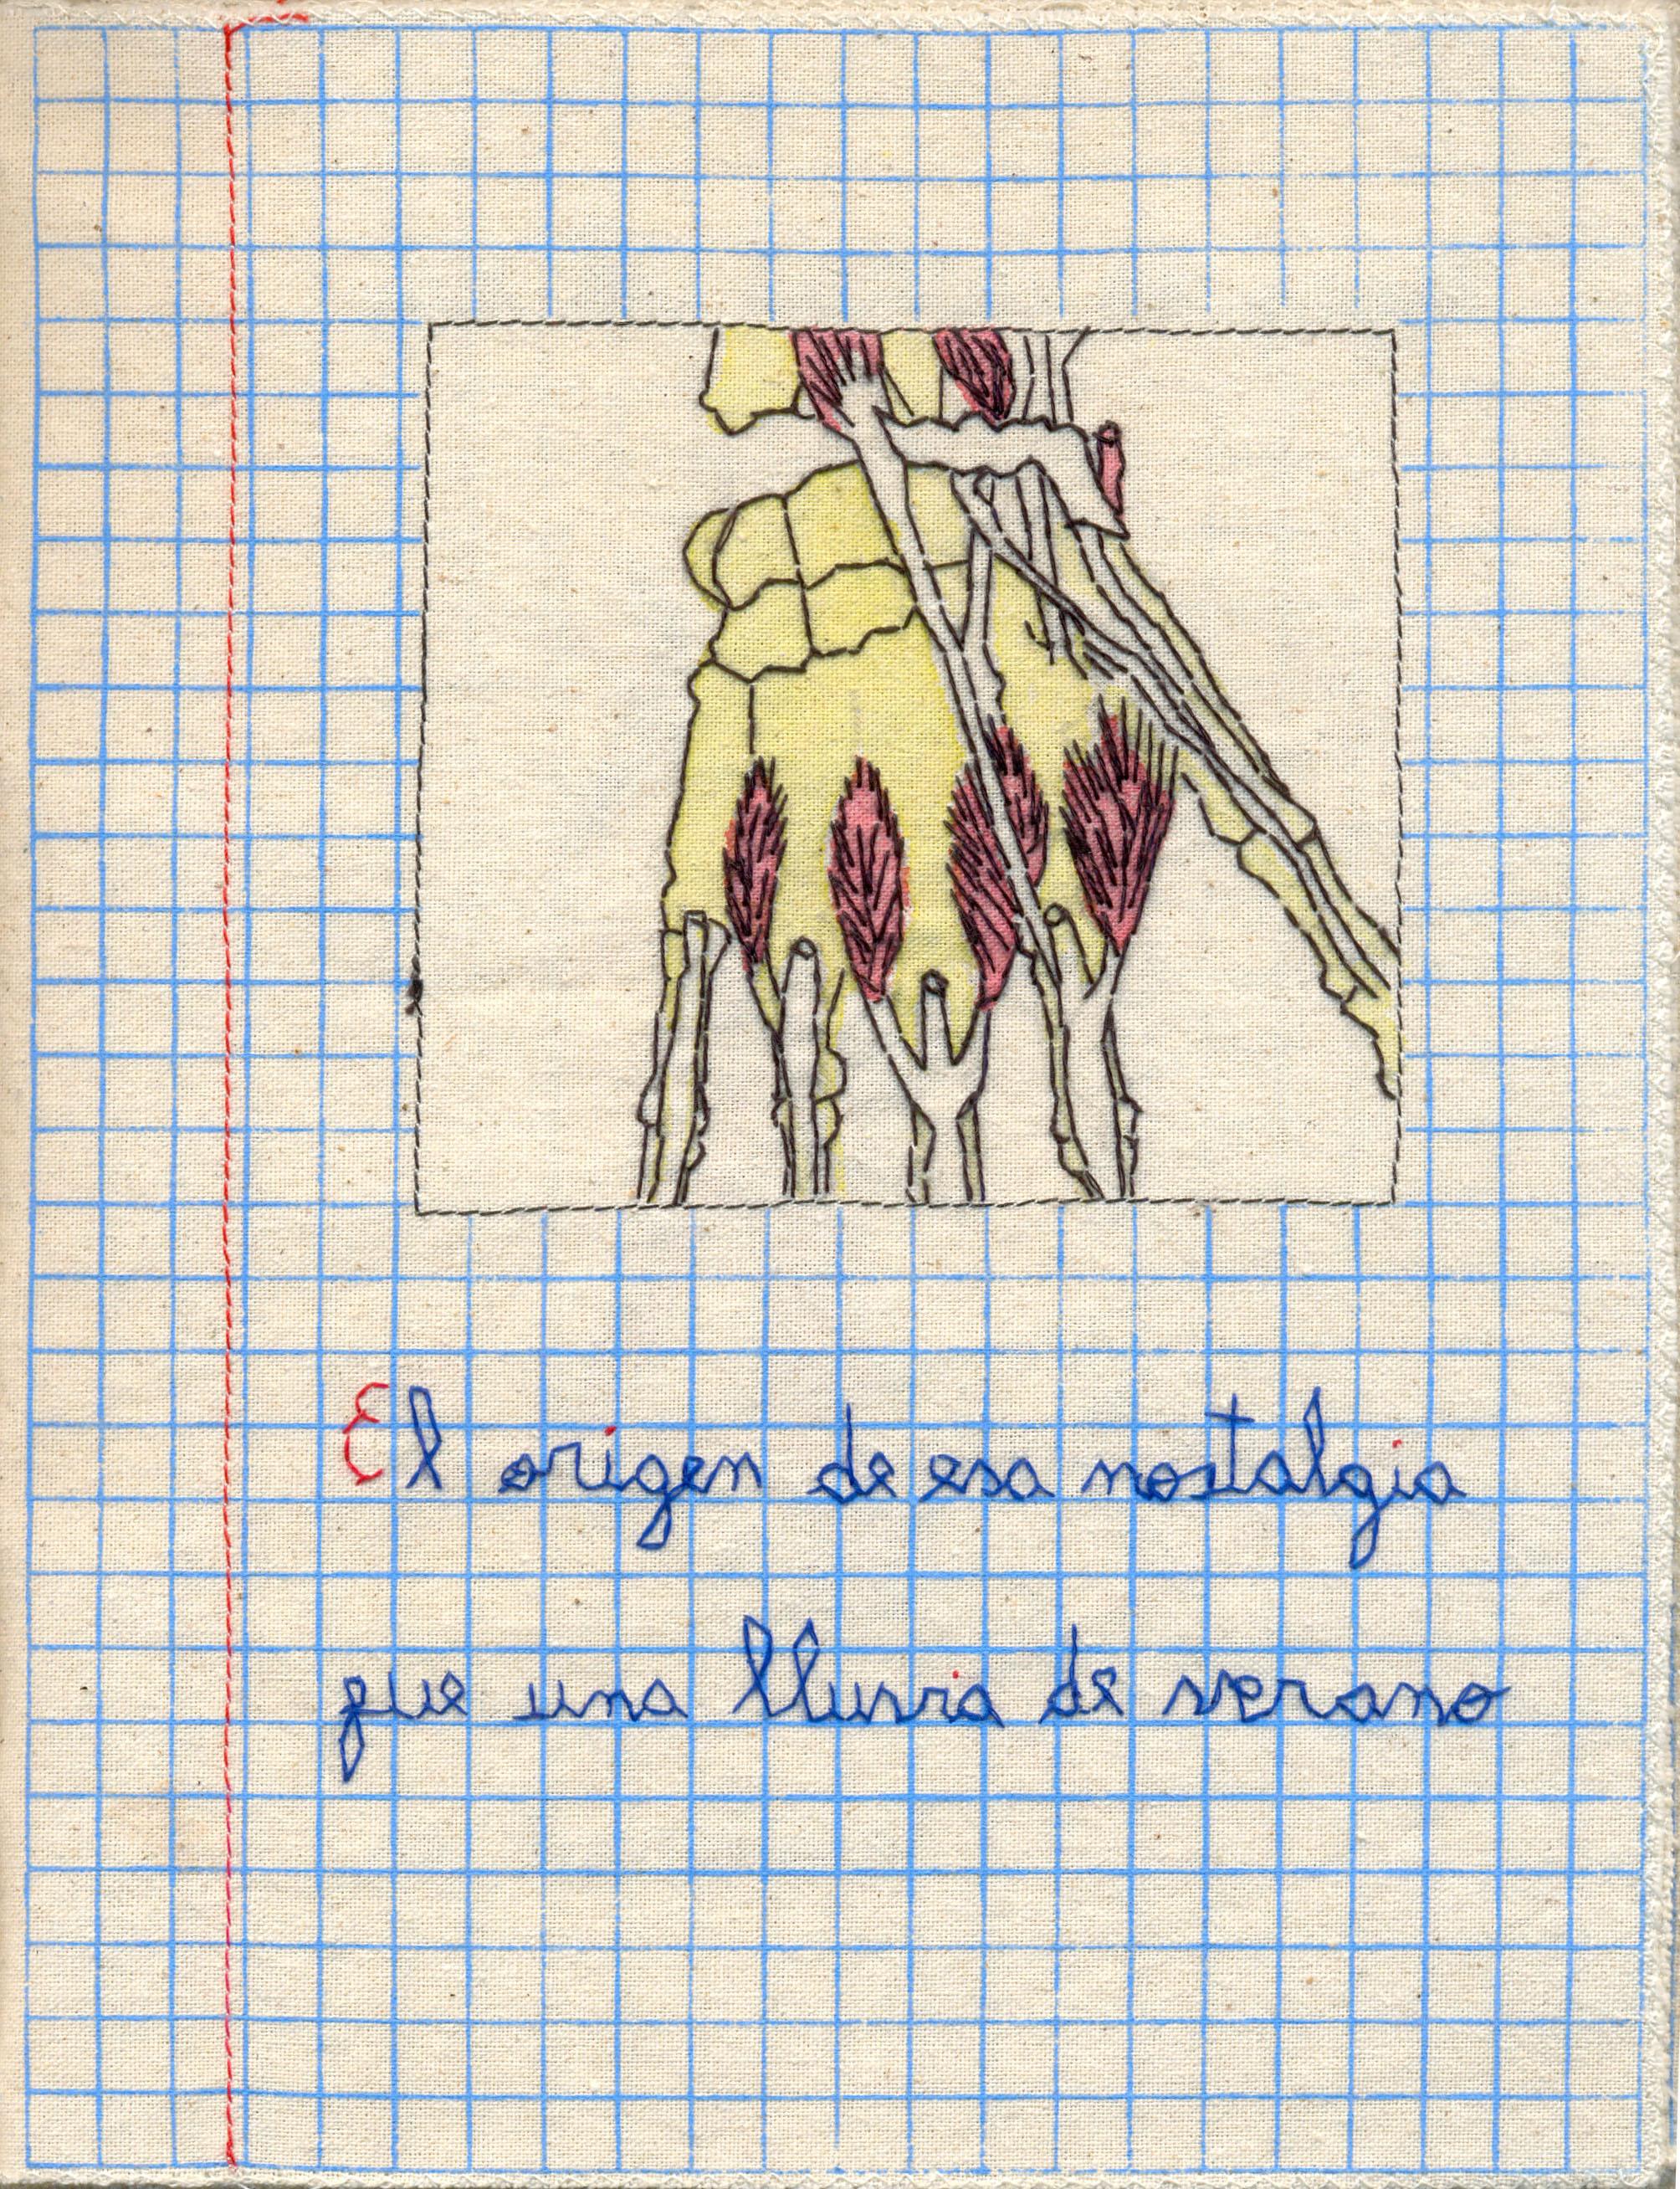 El origen de esa nostalgia
que una lluvia de verano